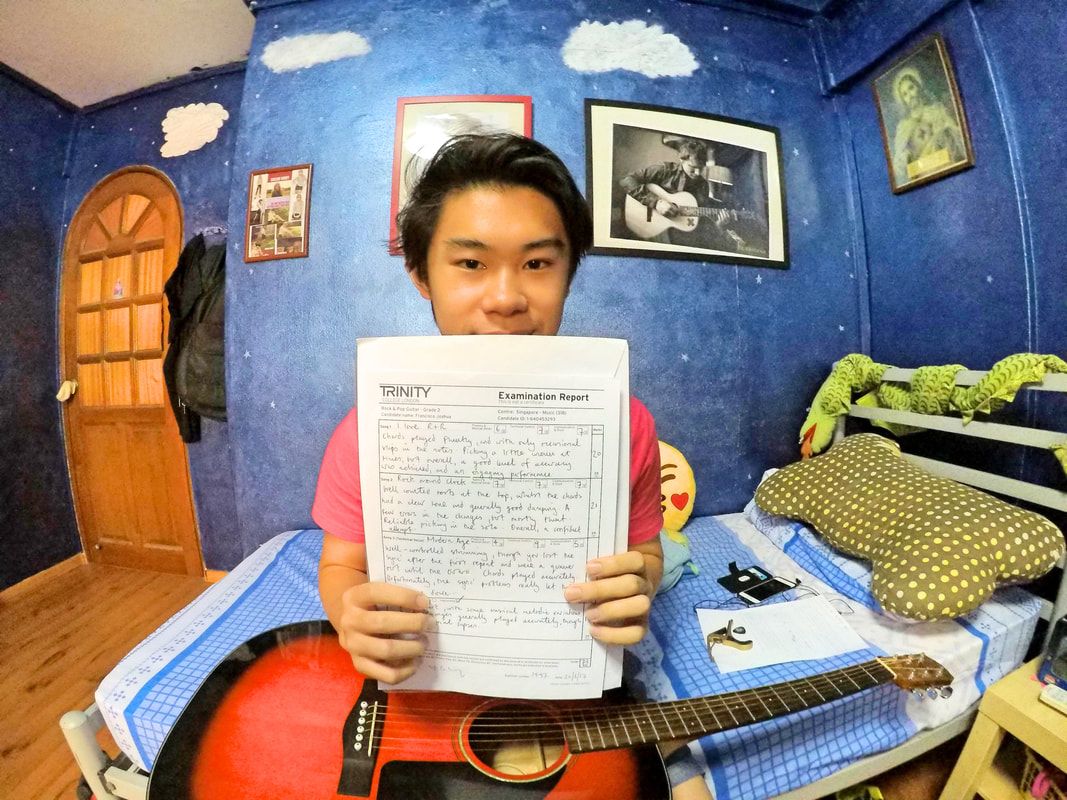 TRINITY
COLLEGE LONDON
Examination Report
This is not a certificate
Rock & Pop Guitar - Grade 2
Centre: Singapore - Music (318)
Candidate name: Francisco Joshua
Candidate ID: 1-640453293
Song 1 I love R+R 6 7 7
Chords played fluently, and with only occasional
slips in the notes. Picking a little uneven at
times, but overall, a good level of accuracy
was achieved, and an engaging performance.
20
Song 2 Rock around clock 7 7 7
Well counted rests at the top, whilst the chords
had a clear tone and generally good damping. A
few errors in the changes, but mostly fluent.
Reliable picking in the solo. Overall, a confident
attempt.
21
Modern Age 4
Well-controlled strumming, though you lost the
after the first repeat and were a
until the Chords played accurately,
Unfortunately, the problems really let
down.
with some musical melodic
generally played accurately, though
lapses.